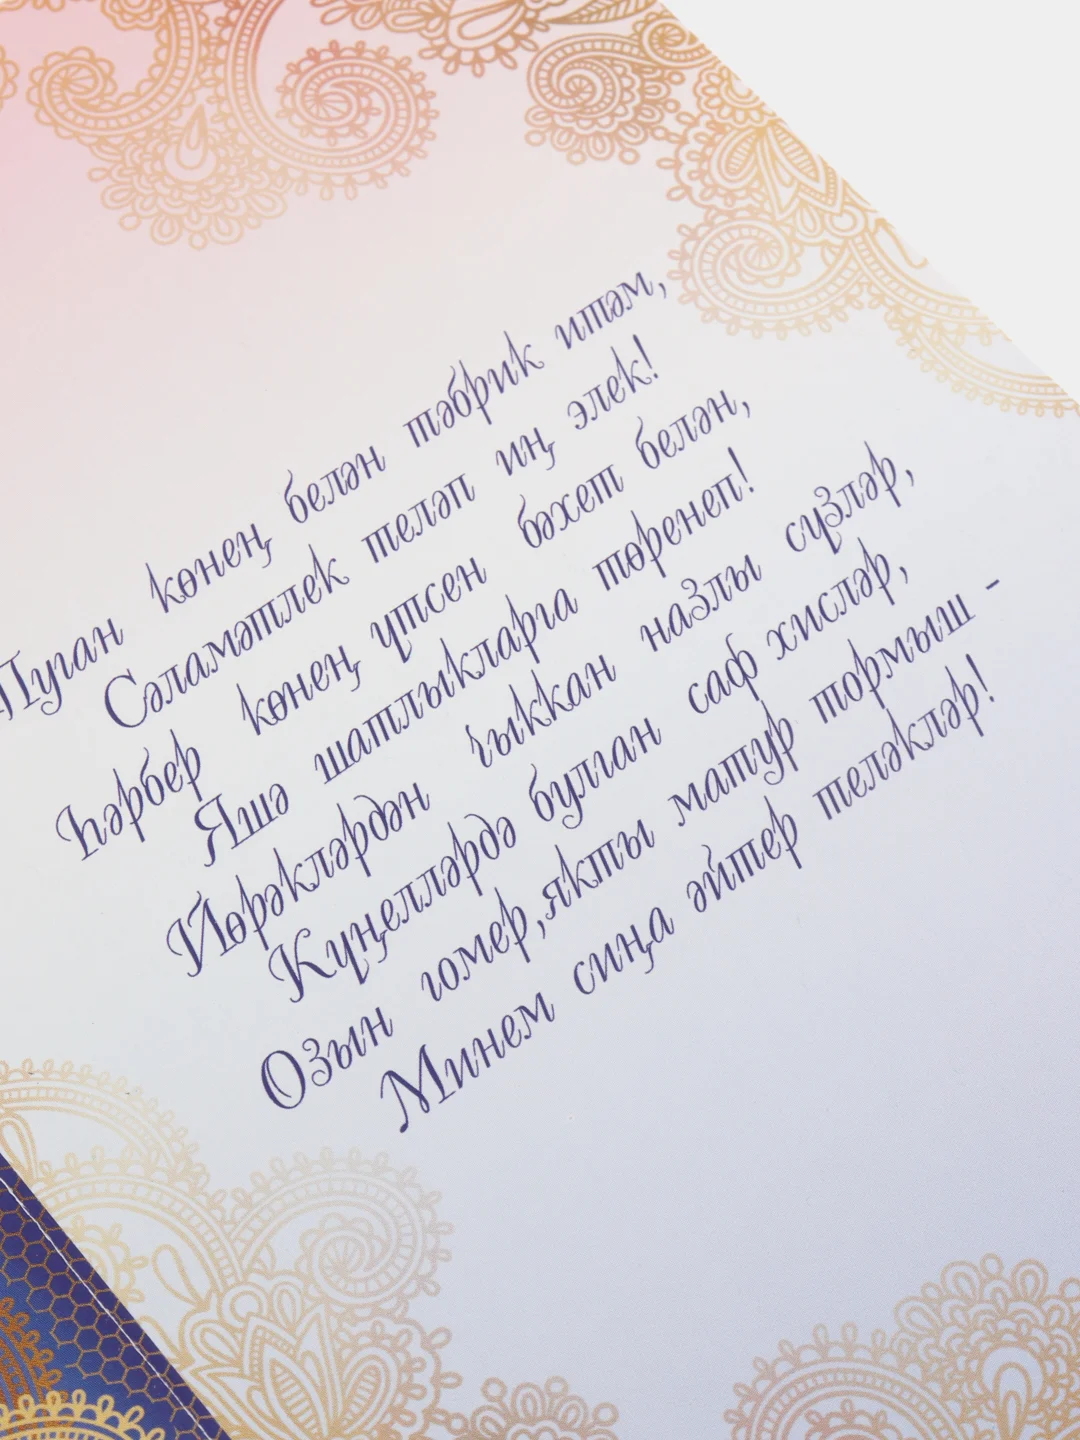 Туган көнең белән тәбрик итәм,
Сәламәтлек теләп иң элек!
Һәрбер көнең үтсен бәхет белән,
Яшә шатлыкларга төренеп!
Йөрәкләрдән чыккан назлы сүзләр,
Күңелләрдә булган саф хисләр,
Озын гомер,якты матур тормыш -
Минем сиңа әйтер теләкләр!